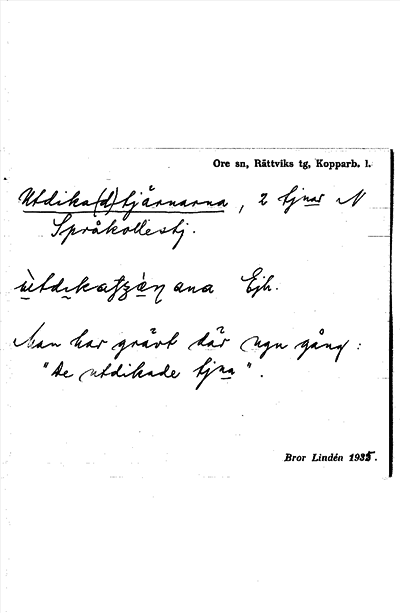 Ore sn, Rättviks tg, Kopparb. l.
Utdika(d)tjärnarna, 2 tjnar N
Språkollestj.
ùtdikatşä̀ṇana Ejh.
Man har grävt där ngn gång:
"De utdikade tjna".
Bror Lindén 1935.